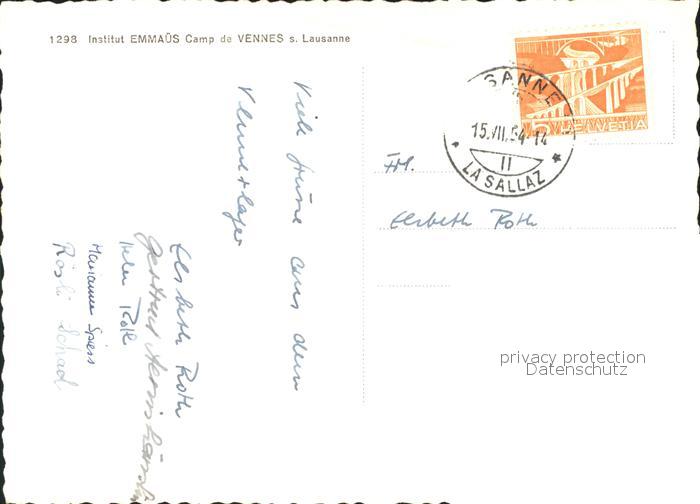 1298 Institut EMMAÜS Camp de VENNES s. Lausanne
Viele Grüsse aus dem
Venneslager
Elsbeth Roth
Gertrud
Helen Roth
Marianne Spiess
Rösli Schad
SANNE
15.VII.54-14
II
LA SALLAZ
5 HELVETIA
Frl.
Elsbeth Roth
privacy protection
Datenschutz